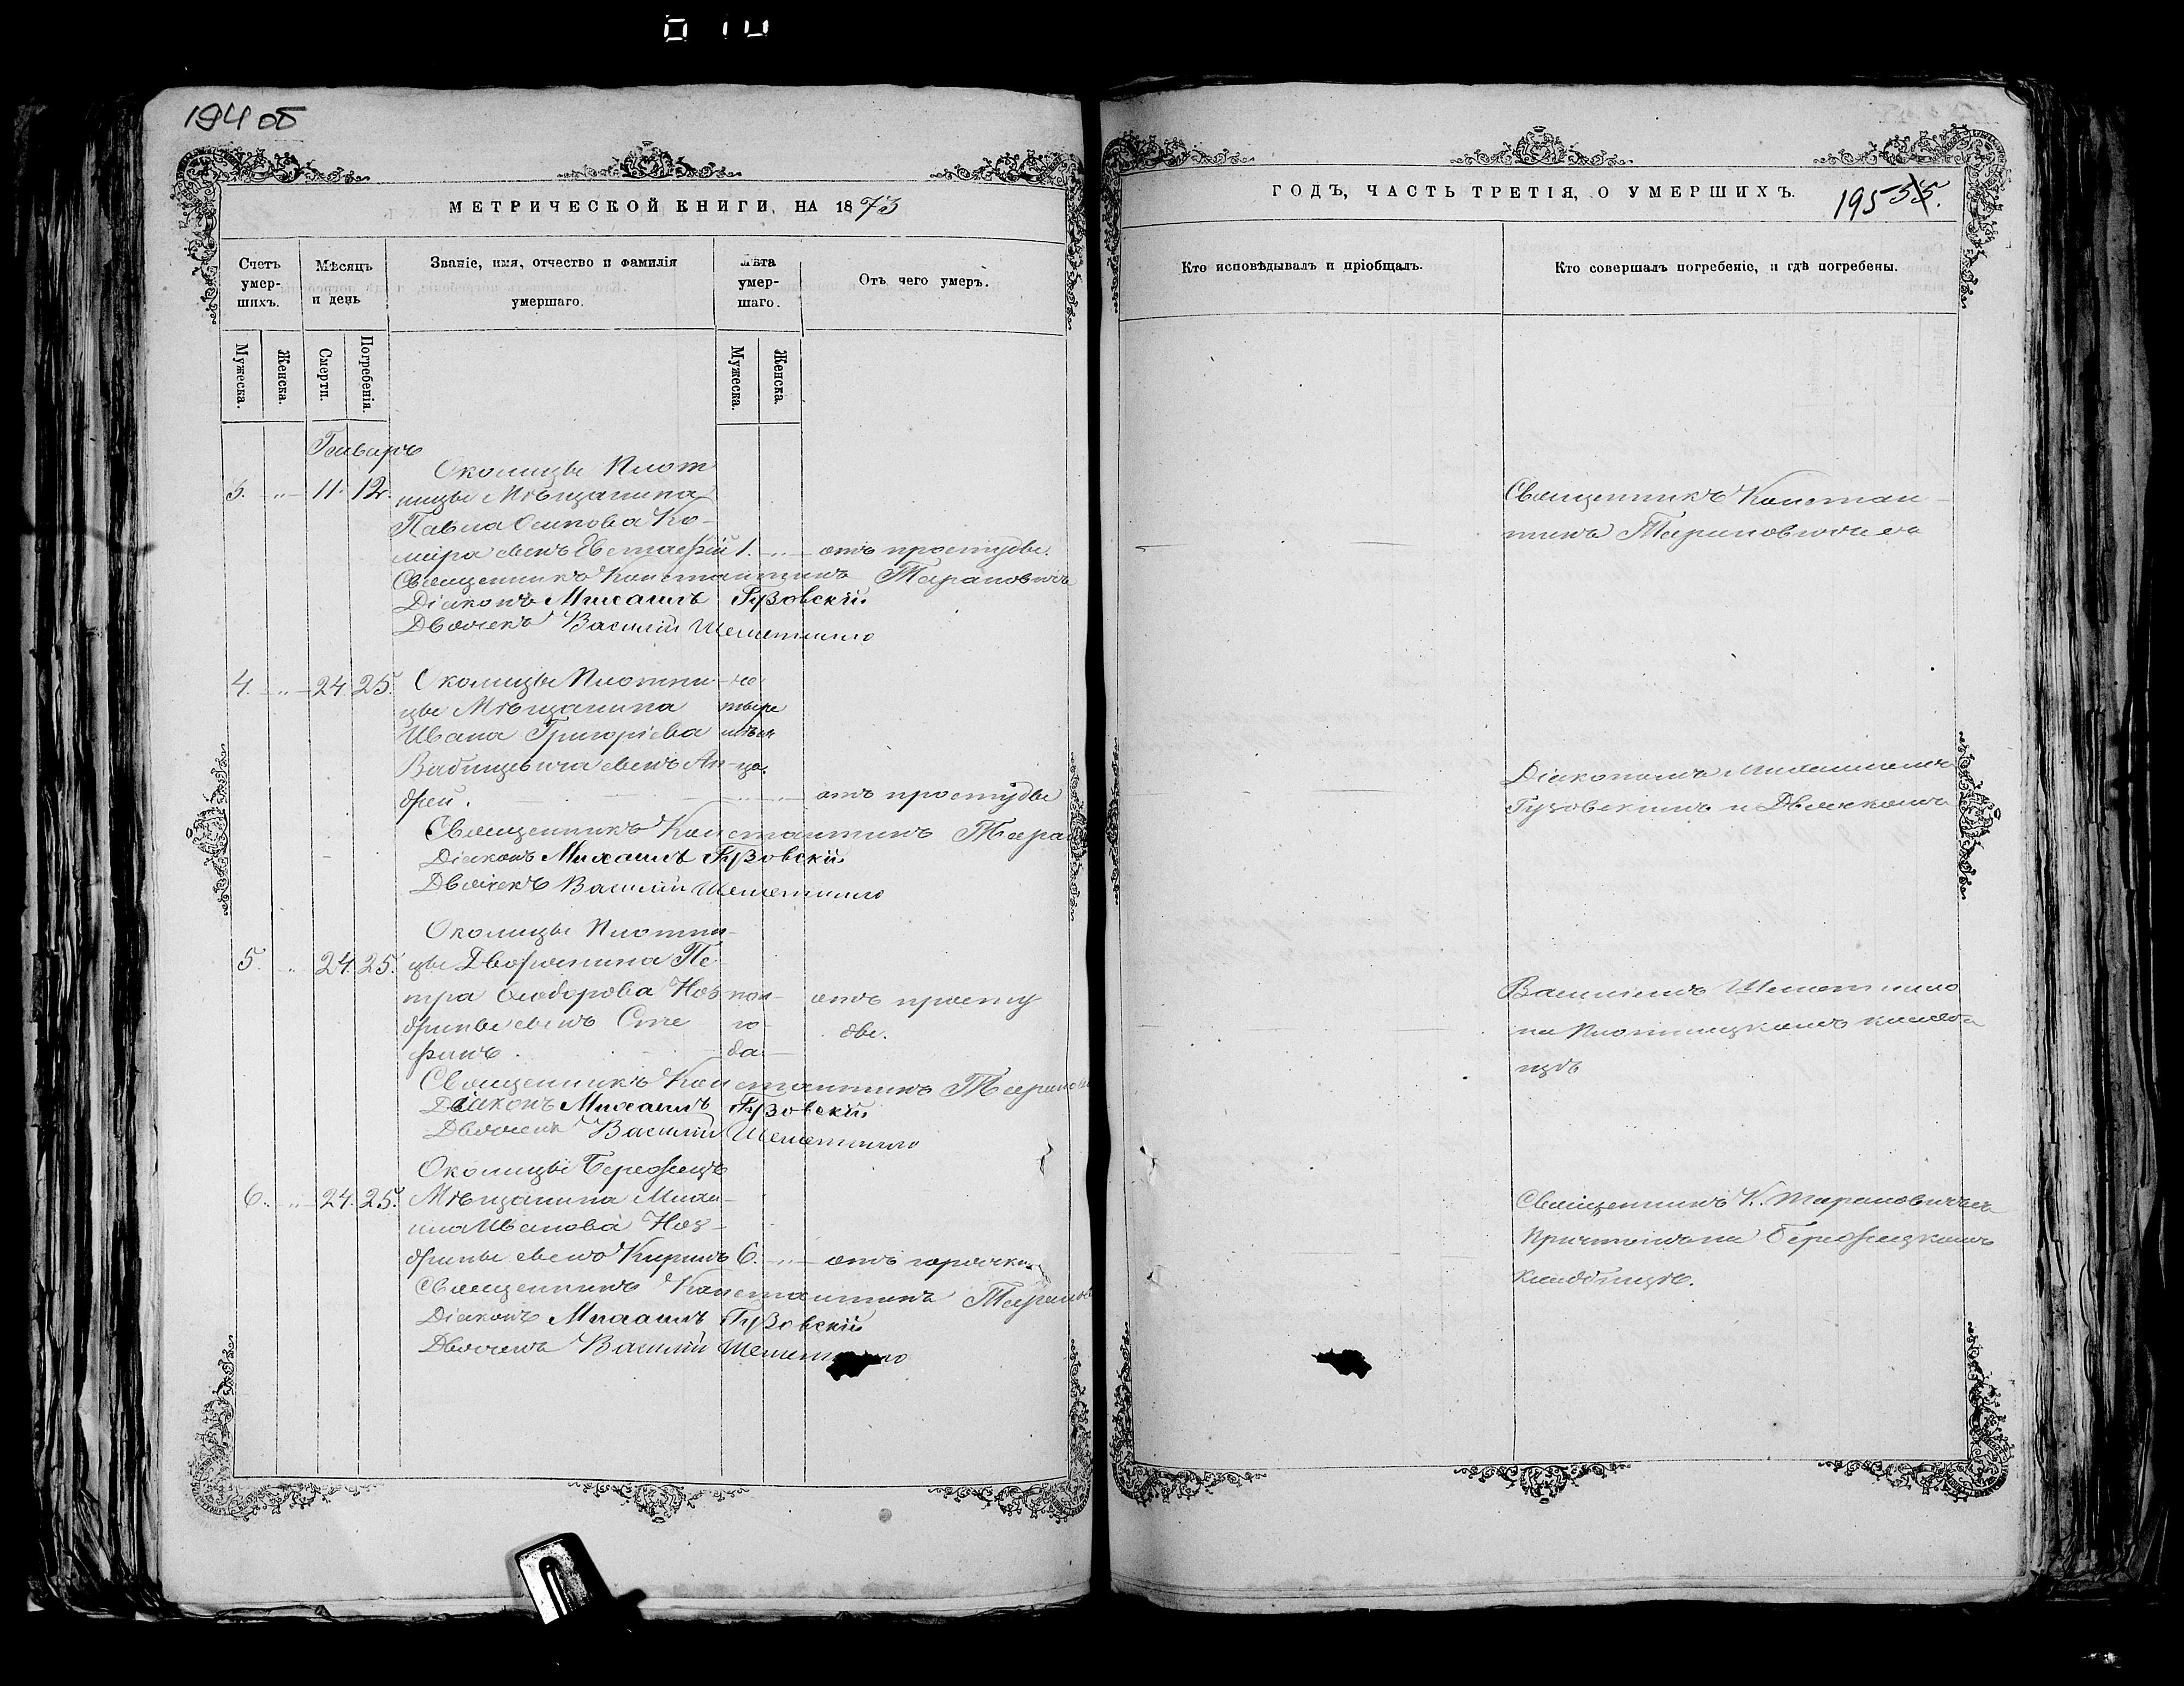 194 об
МЕТРИЧЕСКОЙ КНИГИ, НА 1873
Счетъ умер-шихъ.
Мѣсяцъ и день
Званіе, имя, отчество и фамилія умершаго.
Лѣта умер-шаго.
Отъ чего умеръ.
Мужеска.
Женска.
Смерти.
Погребенія.
Мужеска.
Женска.
Январь
Околицы Плот
3. „ 11. 12. ницы Мѣщанина
Павла Осипова Ко-
мара сынъ Евстафій 1. „ отъ простуды.
Священникъ Константинъ Тарановичъ
Діаконъ Михаилъ Гузовскій
Дьячекъ Василій Шеметилло
4. „ 24 25. Околицы Плотни- че
цы Мѣщанина тыре
Ивана Григорієва мѣся
Вабищевича сынъ Ан- ца.
дрей. „ отъ простуды
Священникъ Константинъ Таран
Діаконъ Михаилъ Гузовскій
Дьячекъ Василій Шеметилло
Околицы Плотни-
5. „ 24. 25. цы Дворянина Пе
тра Ѳеодорова Ноз пол- отъ просту
дрины сынъ Сте го- ды.
фанъ. да
Священникъ Константинъ Таранов
Діаконъ Михаилъ Гузовскій
Дьячекъ Василій Шеметилло
Околицы Бережцъ
6. „ 24. 25. Мѣщанина Миха-
ила Иванова Ноз-
дрины сынъ Кирилъ 6. „ отъ горячки
Священникъ Константинъ Таранов
Діаконъ Михаилъ Гузовскій
Дьячекъ Василій Шеметилло
ГОДЪ, ЧАСТЬ ТРЕТІЯ, О УМЕРШИХЪ.
195
Кто исповѣдывалъ и пріобщалъ.
Кто совершалъ погребеніе, и гдѣ погребены.
Священникъ Констан-
тинъ Тарановичъ съ
Діакономъ Михаиломъ
Гузовскимъ и Дьячкомъ
Василіемъ Шеметилло
на Плотницкомъ кладби
щѣ
Священникъ К. Тарановичъ съ
Причтомъ на Бережецкомъ
Кладбищѣ.